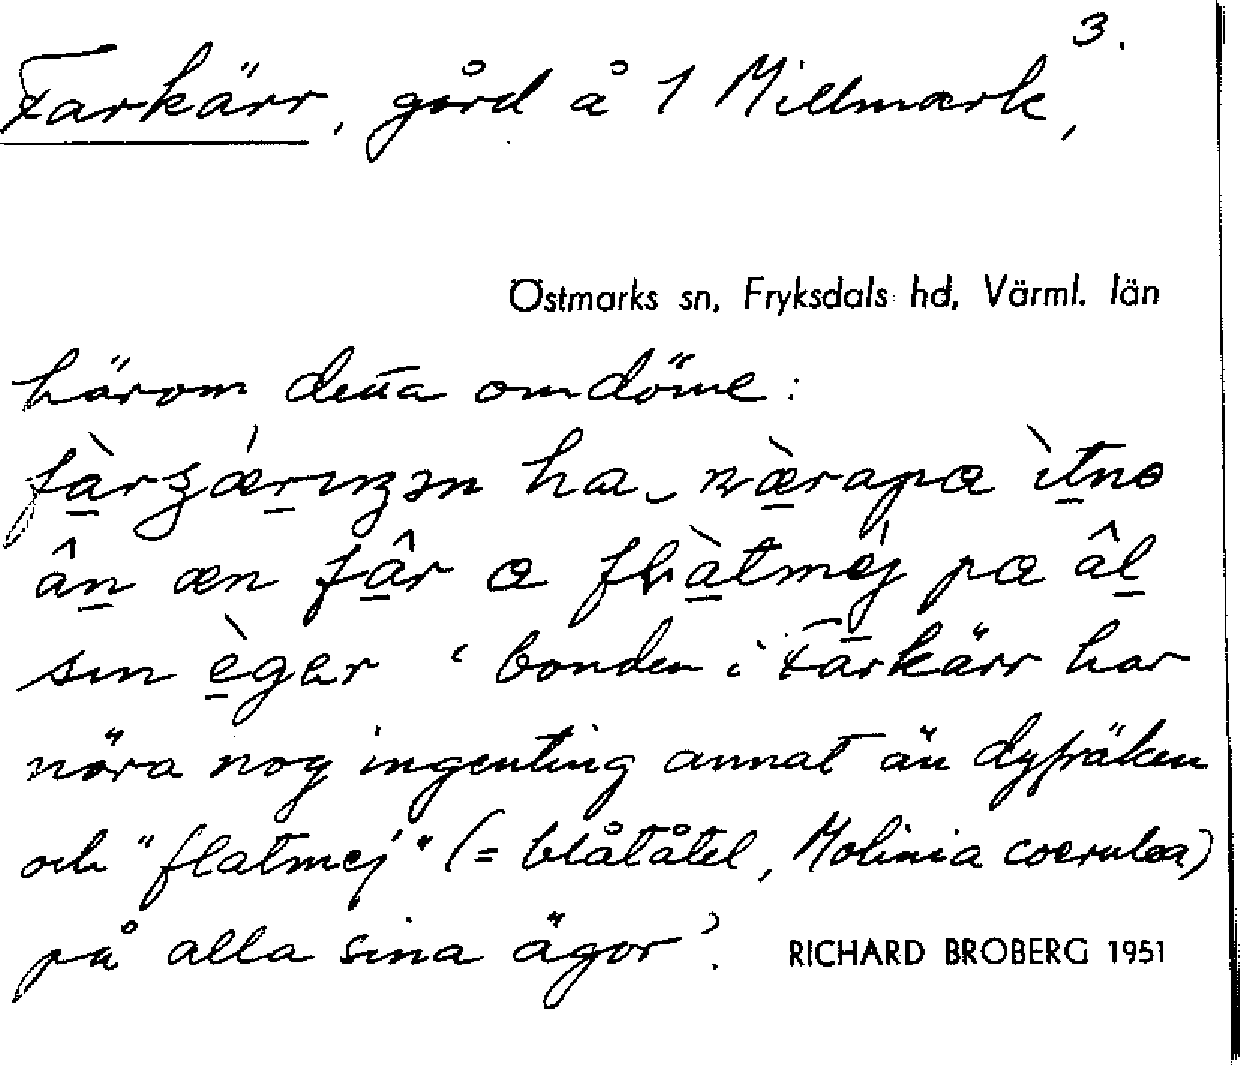 3.
Farkärr, gård å 1 Millmark,
Östmarks sn, Fryksdals hd, Värml. län
härom detta omdöme:
ha
æn pa
sɪn èger ‘bonden i Farkärr har
nära nog ingenting annat än dyfräken
och "flatmej" (= blåtåtel, Molinia coerulea)
på alla sina ägor’.
RICHARD BROBERG 1951